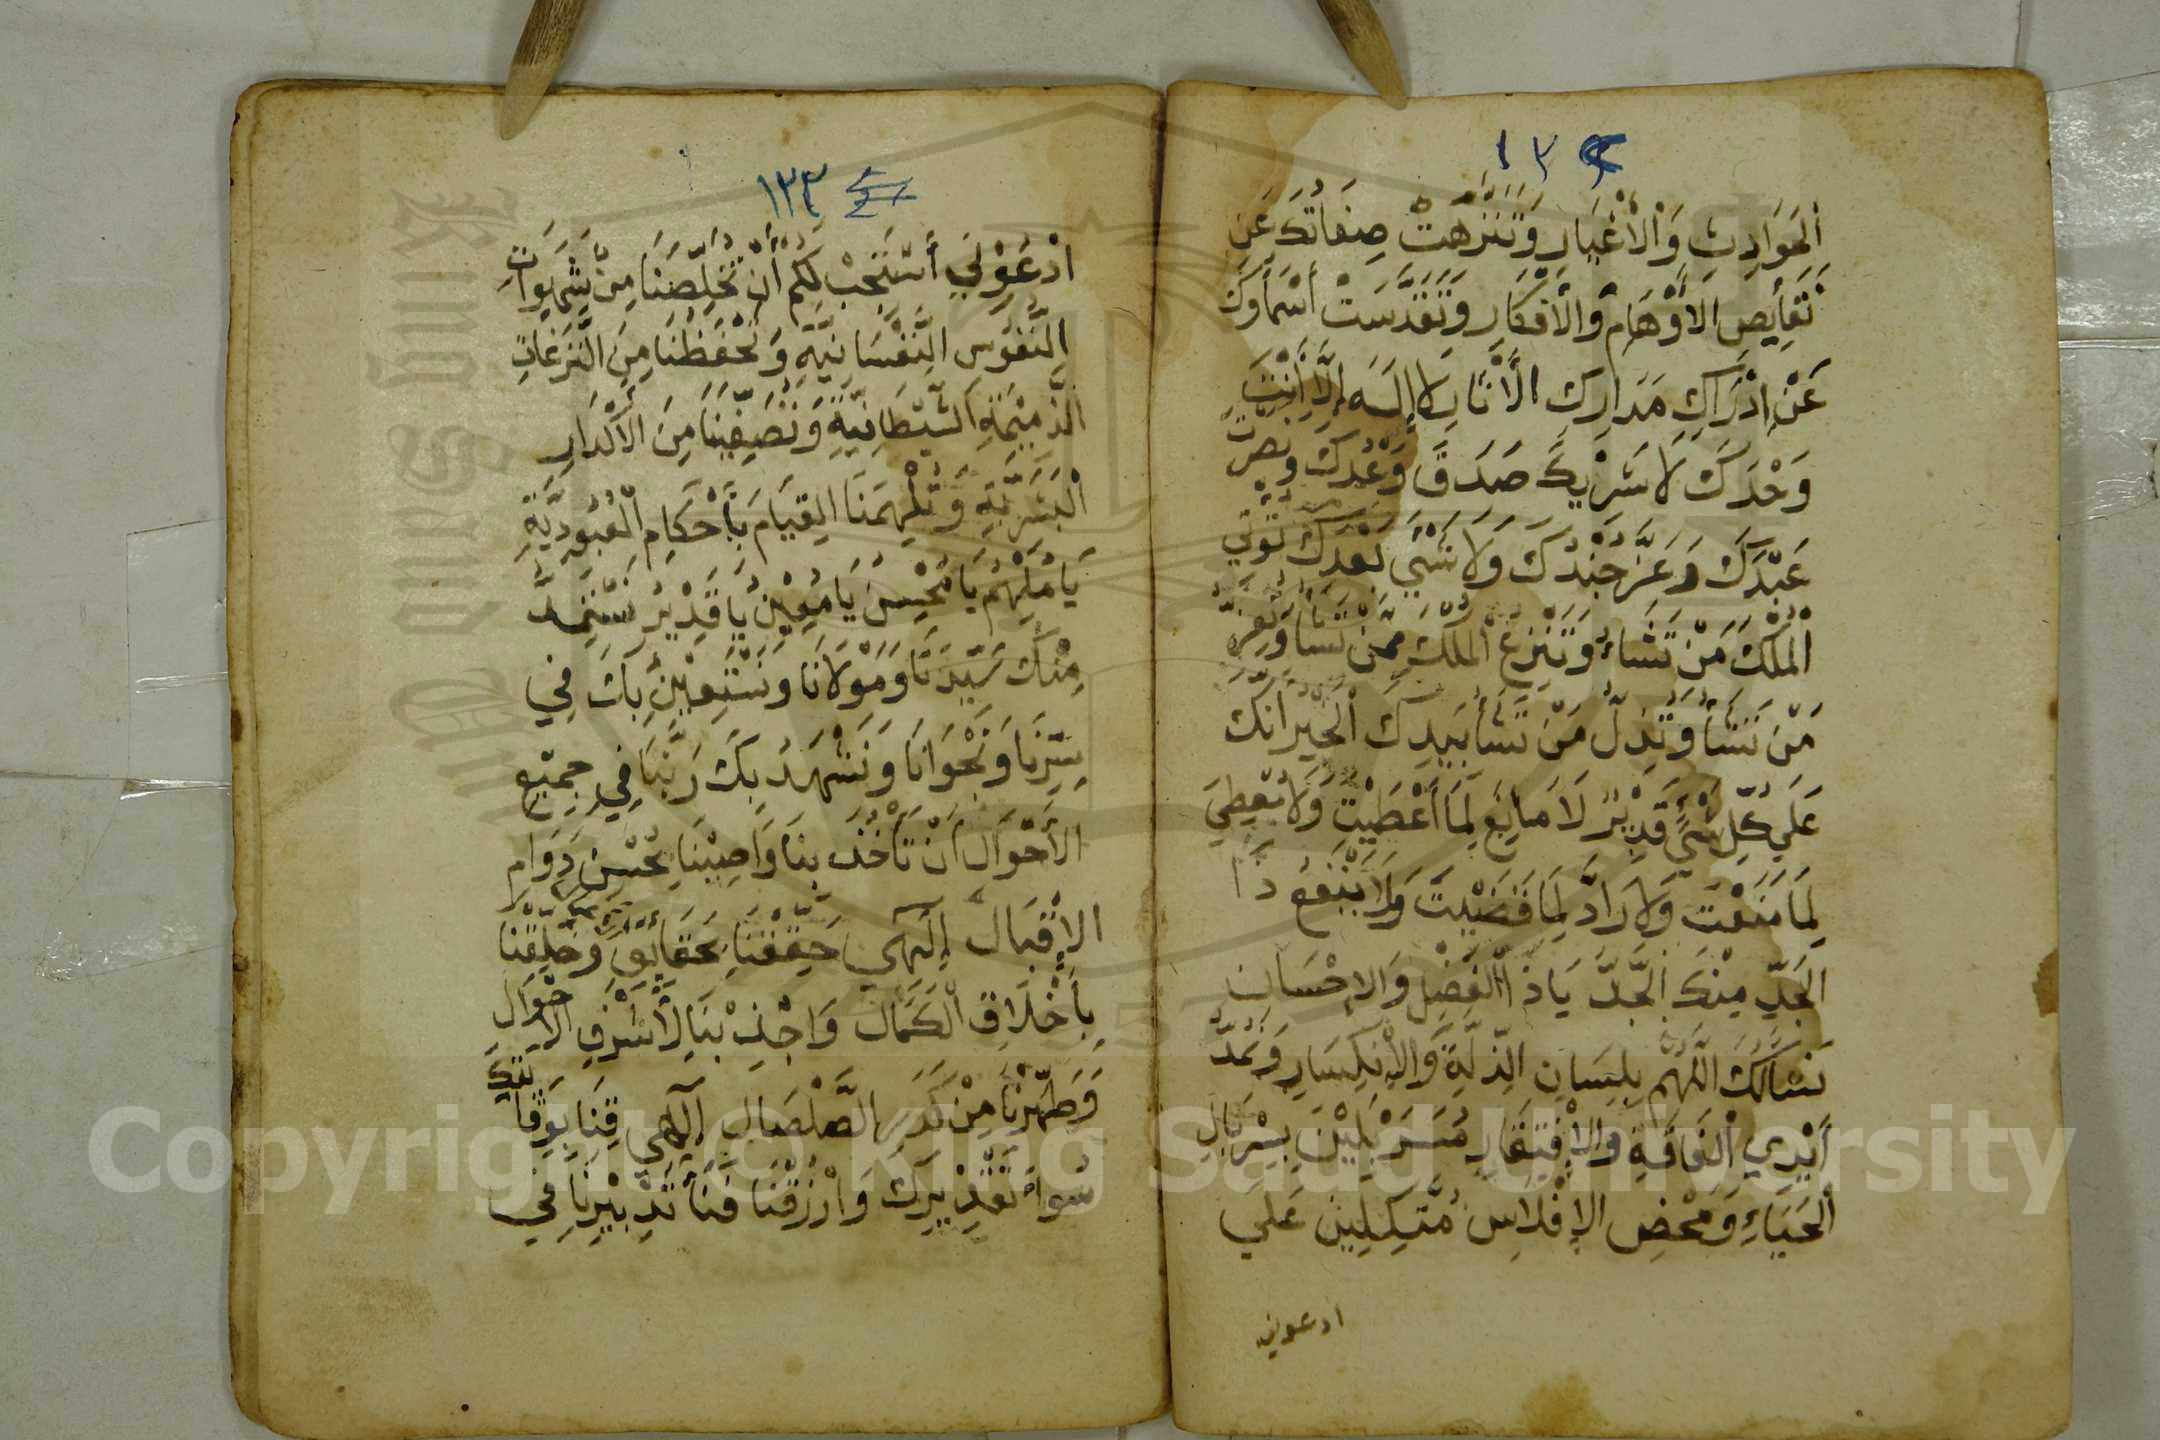 ١٣٢
الحَوَادِثِ وَالْأَغْيَارِ وَتَنَزَّهَتْ صِفَاتُكَ عَنْ
نَقَايِصِ الْأَوْهَامِ وَالْأَفْكَارِ وَتَقَدَّسَتْ أَسْمَاؤكَ
عَنْ إِدْرَاكِ مَدَارِكِ لَا إِلَهَ إِلَّا أَنْتَ
وَحْدَكَ لَا شَرِيْكَ صَدَقَ وَعْدُكَ وَنصرت
عَبْدَكَ وَعَزَّ جُنْدُكَ وَلَا شَيْئَ بَعْدَكَ تُؤْتِي
الْمُلْكَ مَنْ تَشَاءُ وَتَنْزِعُ الْمُلْكَ مِمَّنْ تَشَأُ وَتُعِزُّ
مَنْ تَشَأُ وَتُذِلُّ مَنْ تَشَأُ بِيَدِكَ الْخَيْرُ انَّكَ
عَلَي كُلِّ شَيْءٍ قَدِيْرٌ لَا مَانِعَ لِمَا أَعْطَيْتَ وَلَا مُعْطِيَ
لِمَا مَنَعْتَ وَلَا رَادَّ لِمَا قَضَيْتَ وَلَا يَنْفَعُ ذَا
الْجَدِّ مِنْكَ الْجَدُّ يَا ذَا الْفَضْلِ وَالإِحْسَانِ
نَسْالُكَ اللَّهُمَّ بِلِسَانِ الذِّلَّةِ وَالْإِنْكِسَارِ وَنَمُدُّ
أَيْدِي الْفَاقَةِ وَالْإِفْتِقَارِ مُتَسَرْبِلِيْنَ بِسِرْبَالِ
الْحَيَاءِ وَمَحْضِ الإِفْلَاسِ مُتَّكِلِينَ عَلَي
ادعوني
١٣٣
ادْعُوْنِي أَسْتَجِبْ لَكُمْ أَنْ تُخَلِّصَنَا مِنْ شَهَوَاتِ
النُّفُوْسِ النَّفْسَانِيَّةِ وَتَحْفَظَنَا مِنَ النَّزَغَاتِ
الذَّمِيْمَةِ الشَّيْطَانِيَّةِ وَتُصَفِّيَنَا مِنَ الأَكْدَارِ
الْبَشَرِيَّةِ وَتُلْهِمَنَا الْقِيَامَ بِأَحْكَامِ الْعُبُودِيَّةِ
يَا مُلْهِمُ يَا مُحْسِنُ يَا مُعِيْنُ يَا قَدِيْرُ نَسْتَمِدُّ
مِنْكَ سَيِّدَنَا وَمَوْلَانَا وَنَسْتَعِيْنُ بِكَ فِي
سِرِّنَا وَنَجْوَانَا وَنَشْهَدُ بِكَ رَبَّنَا فِي جَمِيْعِ
الأَحْوَالِ أَنْ تَأْخُذَ بِنَوَاصِيْنَا بِحُسْنِ دَوَامِ
الإِقْبَالِ إِلَهِي حَقِّقْنَا بِحَقَايِقِ وَخَلِّقْنَا
بِأَخْلَاقِ الْكَمَالِ وَاجْذِبْنَا لِأَشْرَفِ الْأَحْوَالِ
وَطَهِّرْنَا مِنْ كَدَرِ الصَّلْصَالِ إِلَهِي قِنَا بِوِقَايَتِكَ
سُوءَ تَقْدِيْرِكَ وَارْزُقْنَا فَنَاءَ تَدْبِيْرِنَا فِي